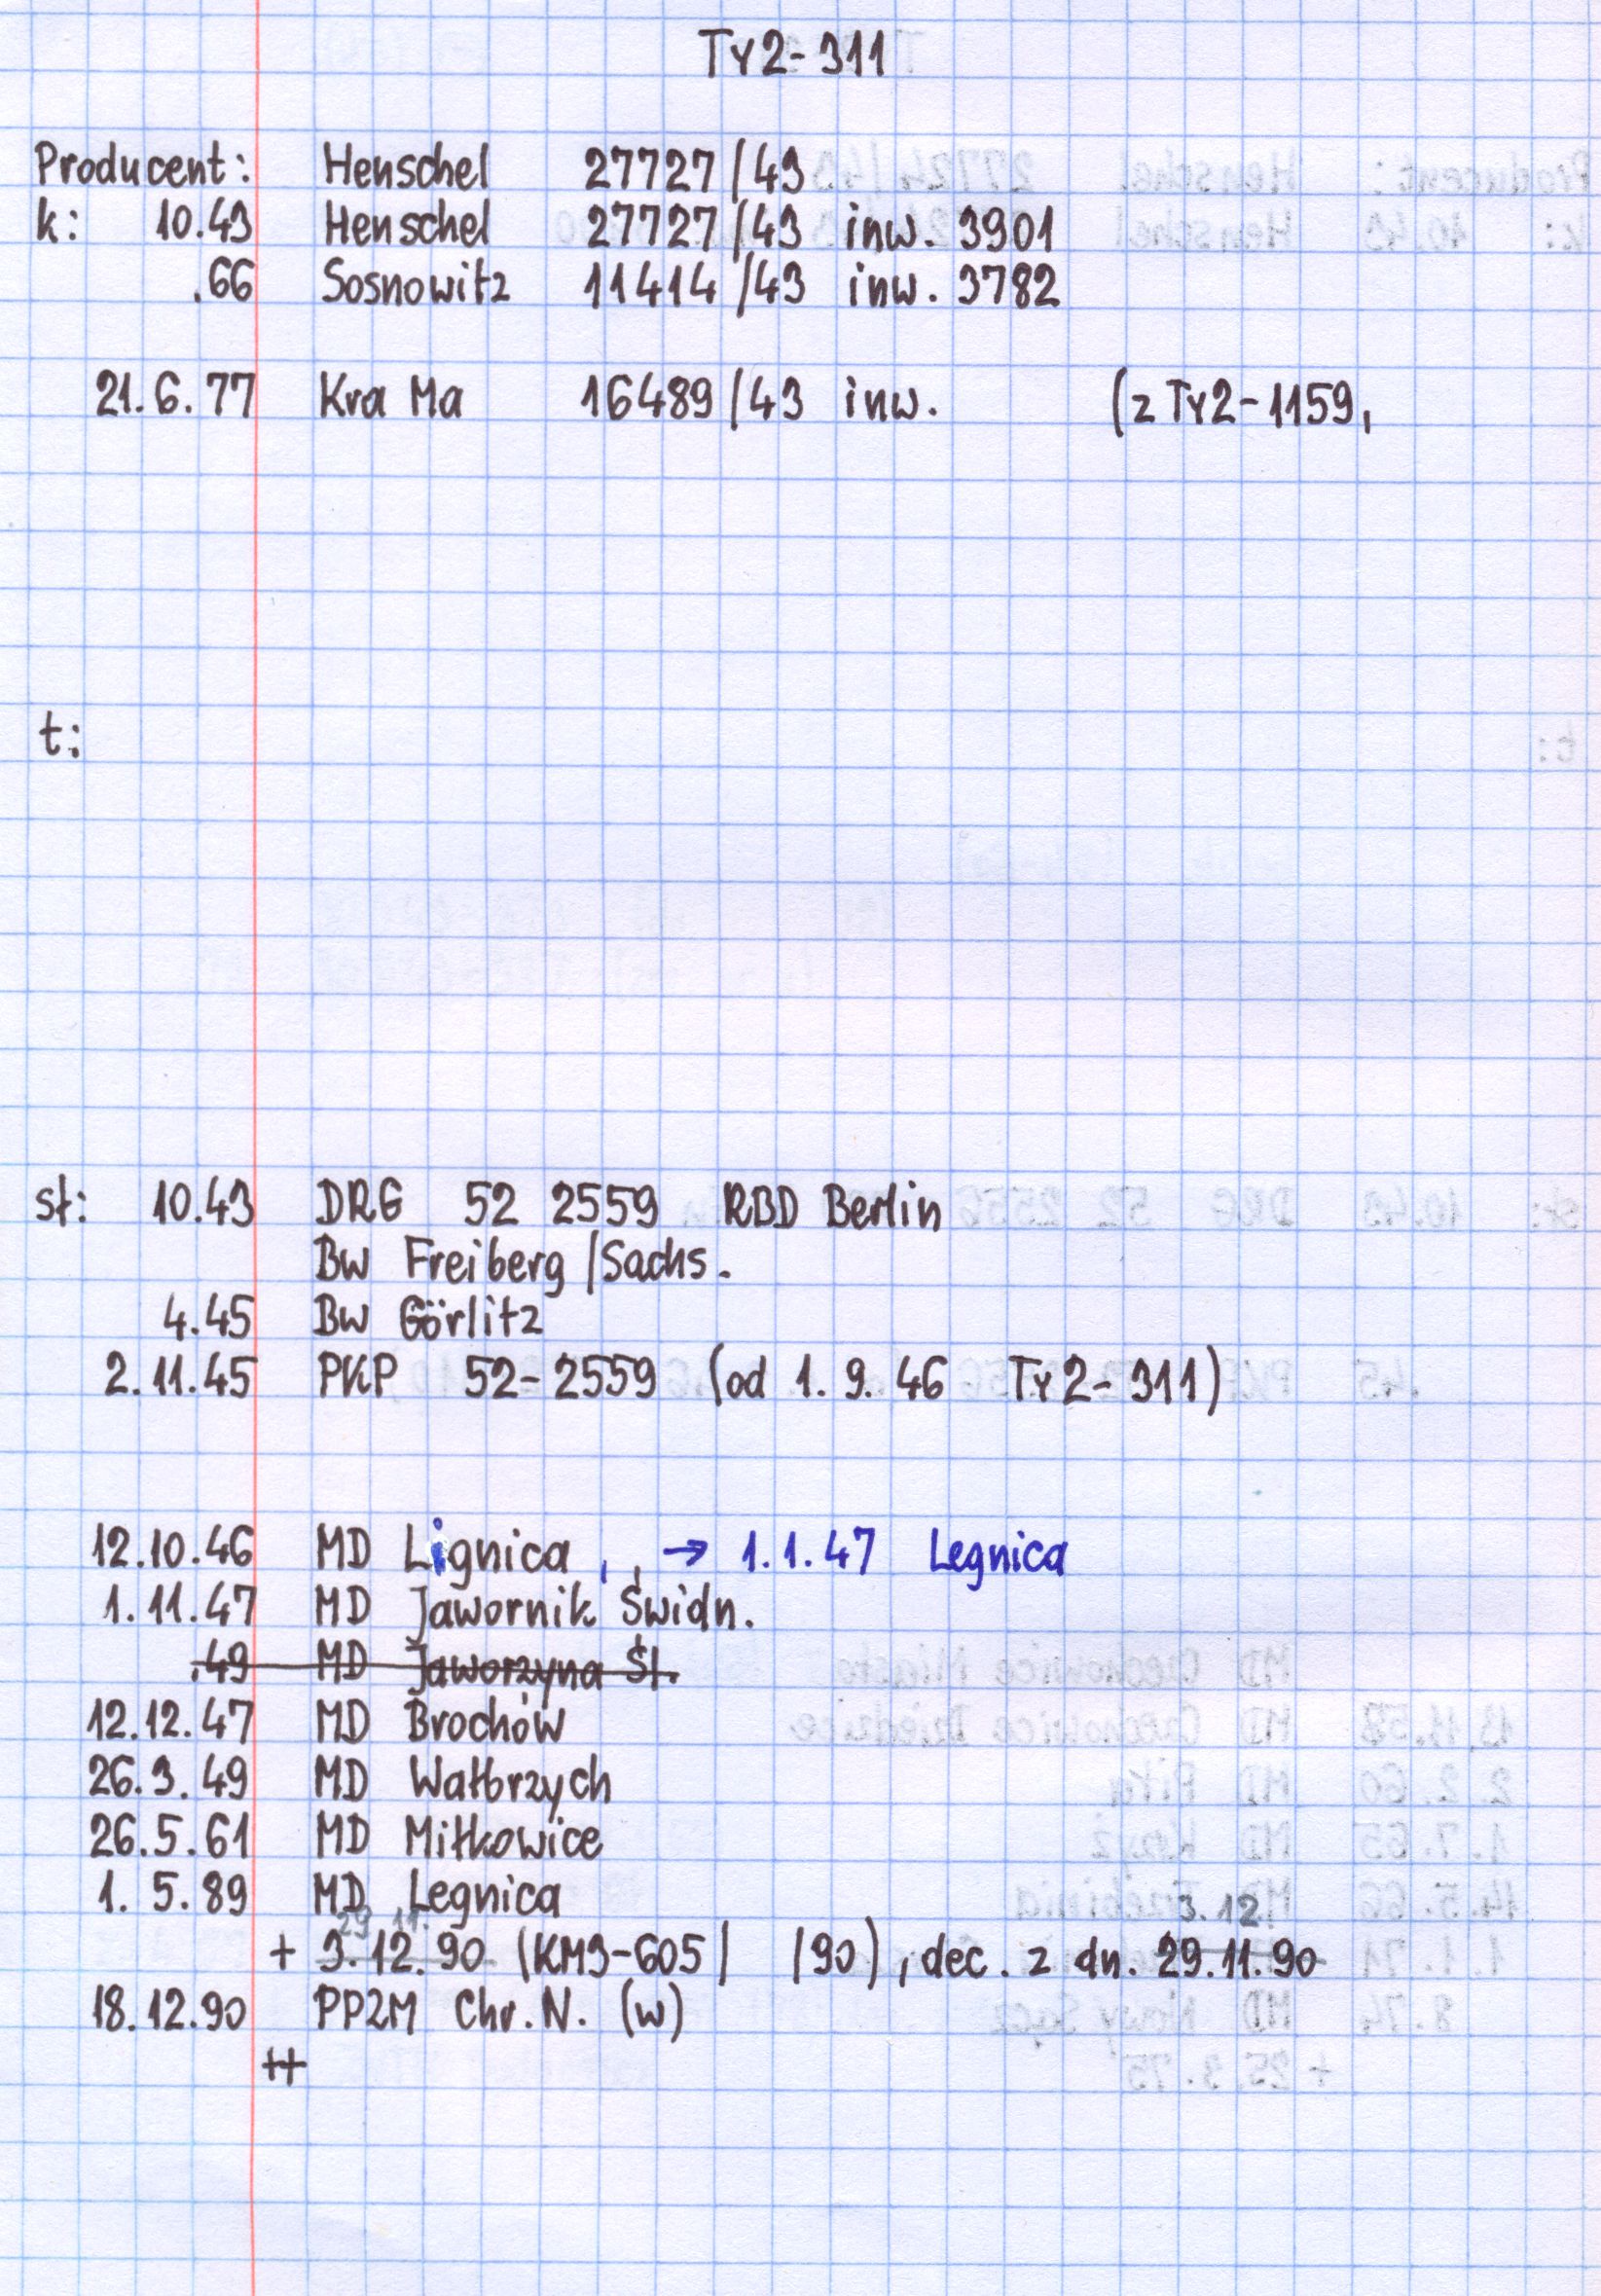 Ty2-311
Producent: Henschel 27727/43
k: 10.43 Henschel 27727/43 inw. 3901
.66 Sosnowitz 11414/43 inw. 3782
21.6.77 Kra Ma 16489/43 inw. (z Ty2-1159,
t:
sł: 10.43 DRG 52 2559 RBD Berlin
Bw Freiberg/Sachs.
4.45 Bw Görlitz
2.11.45 PKP 52-2559 (od 1.9.46 Ty2-311)
12.10.46 MD Lignica, → 1.1.47 Legnica
1.11.47 MD Jawornik Świdn.
.49 MD Jaworzyna Śl.
12.12.47 MD Brochów
26.3.49 MD Wałbrzych
26.5.61 MD Miłkowice
1.5.89 MD Legnica
29.11. 3.12
+ 3.12.90 (KM3-605/ /90), dec. z dn. 29.11.90
18.12.90 PPZM Chr.N. (w)
++